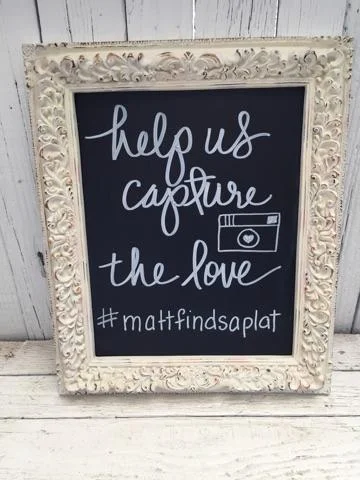 help us
capture
the love
#mattfindsaplat